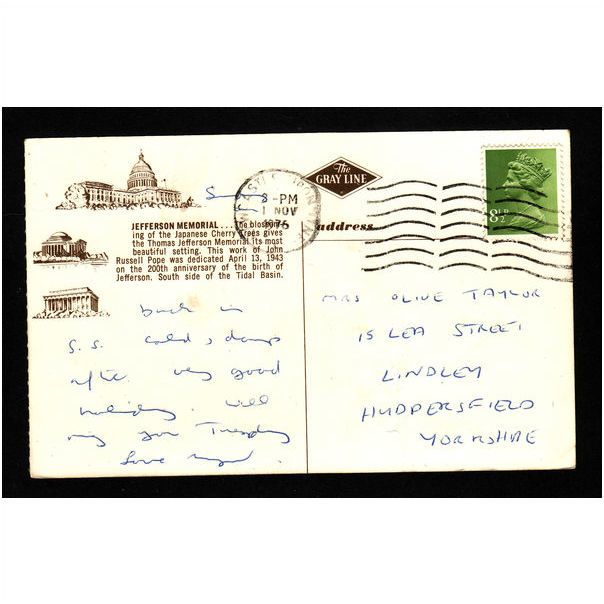 The
GRAY LINE
8½P
-PM
1 NOV
1975
address
JEFFERSON MEMORIAL . . . the blossom-
ing of the Japanese Cherry Trees gives
the Thomas Jefferson Memorial its most
beautiful setting. This work of John
Russell Pope was dedicated April 13, 1943
on the 200th anniversary of the birth of
Jefferson. South side of the Tidal Basin.
Sunday
back in
S.S. cold & damp
after very good
holiday. Will
ring you Tuesday
Love
MRS OLIVE TAYLOR
15 LEA STREET
LINDLEY
HUDDERSFIELD
YORKSHIRE